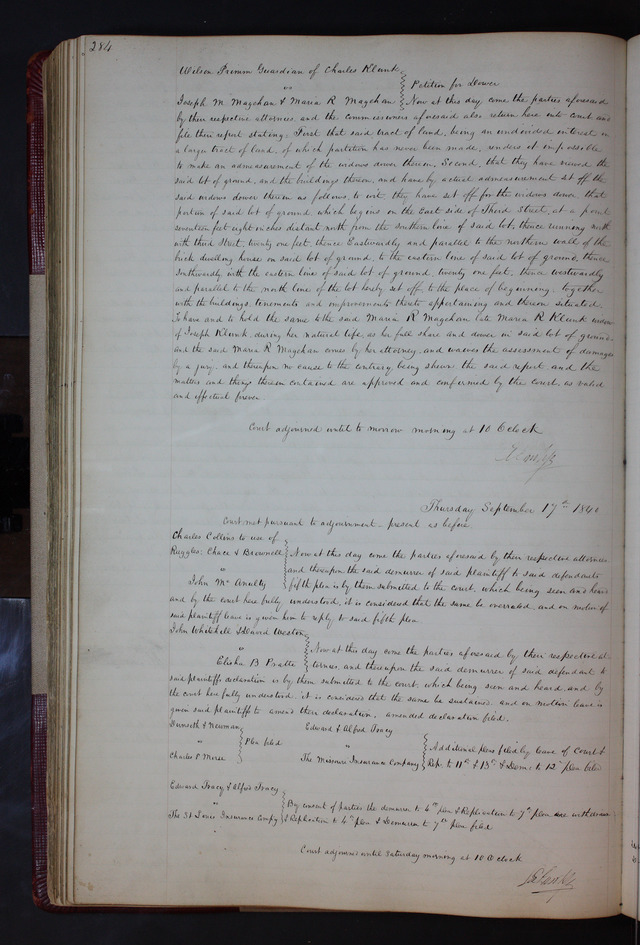 284
Wilson Primm Guardian of Charles Klunk
vs
Petition for Dower
Joseph M Magehan & Maria R Magehan Now at this day come the parties aforesaid
by their respective attornies, and the commissioners aforesaid also return here into court and
file their report stating: First that said tract of land, being an undivided interest in
a larger tract of land, of which partition has never been made, renders it impossible
to make an admeasurement of the widows dower therein, Second, that they have viewed the
said lot of ground, and the buildings thereon, and have by actual admeasurement set off the
said widows dower therein as follows, to wit, they have set off for the widows dower, that
portion of said lot of ground which begins on the East side of Third Street, at a point
seventeen feet eight inches distant north from the southern line of said lot, thence running north
with third Street, twenty one feet, thence Eastwardly and parallel to the northern wall of the
brick dwelling house on said lot of ground, to the eastern line of said lot of ground, thence
southwardly with the eastern line of said lot of ground twenty one feet, thence westwardly
and parallel to the north line of the lot hereby set off, to the place of beginning, together
with the buildings, tenements and improvements thereto appertaining and thereon situated.
To have and to hold the same to the said Maria R Magehan late Maria R Klunk widow
of Joseph Klunk, during her natural life, as her full share and dower in said lot of ground
and the said Maria R Magehan comes by her attorney, and waives the assessment of damages
by a jury, and thereupon no cause to the contrary being shewn the said report, and the
matters and things therein contained are approved and confirmed by the court, as valid
and effectual forever
Court adjourned until to morrow morning at 10 Oclock
Thursday September 17th 1840
Court met pursuant to adjournment – present as before
Charles Collins to use of
Ruggles, Chace & Brownell Now at this day come the parties aforesaid by their respective attornies
vs and thereupon the said demurrer of said plaintiff to said defendants
John Mc Anulty fifth plea is by them submitted to the court, which being seen and heard
and by the court here fully understood, it is considered that the same be overruled, and on motion of
said plaintiff leave is given him to reply to said fifth plea.
John Whitehill & Edward Weston
vs Now at this day come the parties aforesaid by their respective at-
Elisha B Pratte tornies, and thereupon the said demurrer of said defendant to
said plaintiffs declaration is by them submitted to the court, which being seen and heard, and by
the court here fully understood, it is considered that the same be sustained, and on motion leave is
given said plaintiffs to amend their declaration, amended declaration filed.
& Newman Edward & Alfred Tracy
vs Plea filed vs Additional pleas filed by leave of Court &
Charles P Morse The Missouri Insurance Company Rep. to 11th & 13th & Demr. to 12th plea filed
Edward Tracy & Alfred Tracy
vs By consent of parties the demurrer to 6th plea & Replication to 7th plea are withdrawn
The St Louis Insurance Compy & Replication to 6th plea & Demurrer to 7th plea filed
Court adjourned until Saturday morning at 10 Oclock